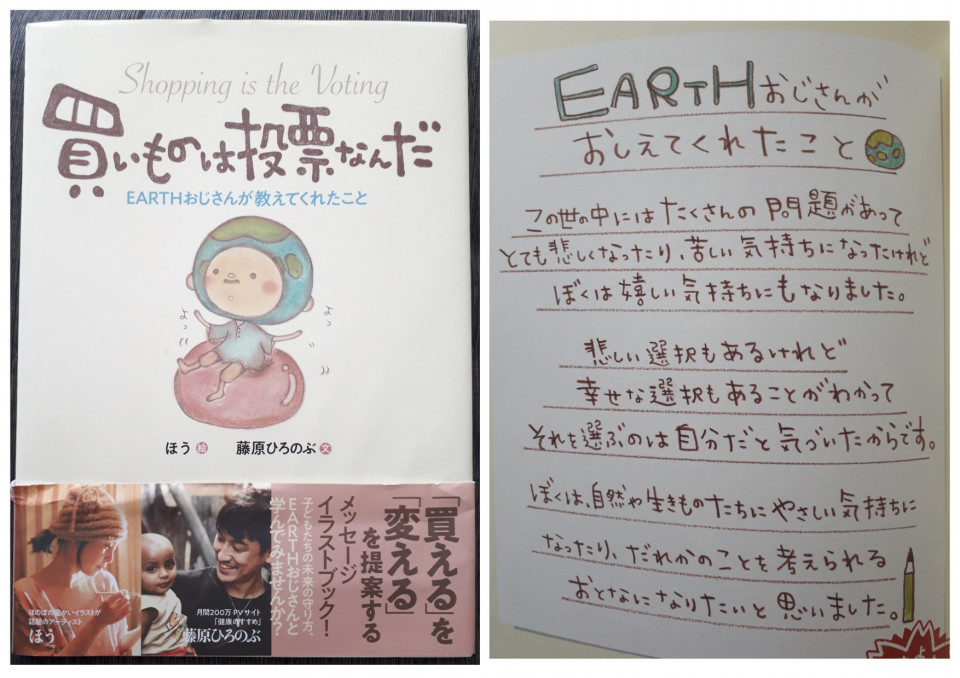 Shopping is the Voting
買いものは投票なんだ
EARTHおじさんが教えてくれたこと
よっ
よっ
ほう 絵 藤原ひろのぶ 文
「買える」を
「変える」
を提案する
メッセージ
イラストブック!
子どもたちの未来の守り方、
EARTHおじさんと
学んでみませんか?
ほのぼの暖かいイラストが
話題のアーティスト
ほう
月間200万PVサイト
「健康のすすめ」
藤原ひろのぶ
EARTHおじさんが
おしえてくれたこと
この世の中にはたくさんの問題があって
とても悲しくなったり、苦しい気持ちになったけれど
ぼくは嬉しい気持ちにもなりました。
悲しい選択もあるけれど
幸せな選択もあることがわかって
それを選ぶのは自分だと気づいたからです。
ぼくは、自然や生きものたちにやさしい気持ちに
なったり、だれかのことを考えられる
おとなになりたいと思いました。